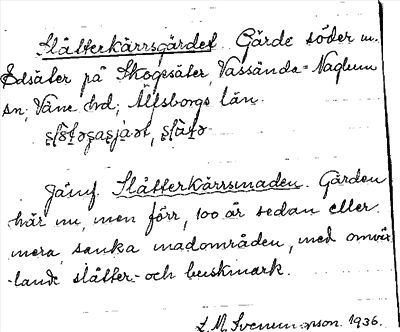 Slåtterkärrsgärdet. Gärde söder m.
Edsäter på Skogsäter, Vassända-Naglum
sn, Väne hd, Älfsborgs län.
Jämf. Slåtterkärrsmaden. Gården
här nu, men förr, 100 år sedan eller
mera, sanka madområden, med omväx
-lande slåtter- och buskmark.
L. M. Svenungsson. 1936.